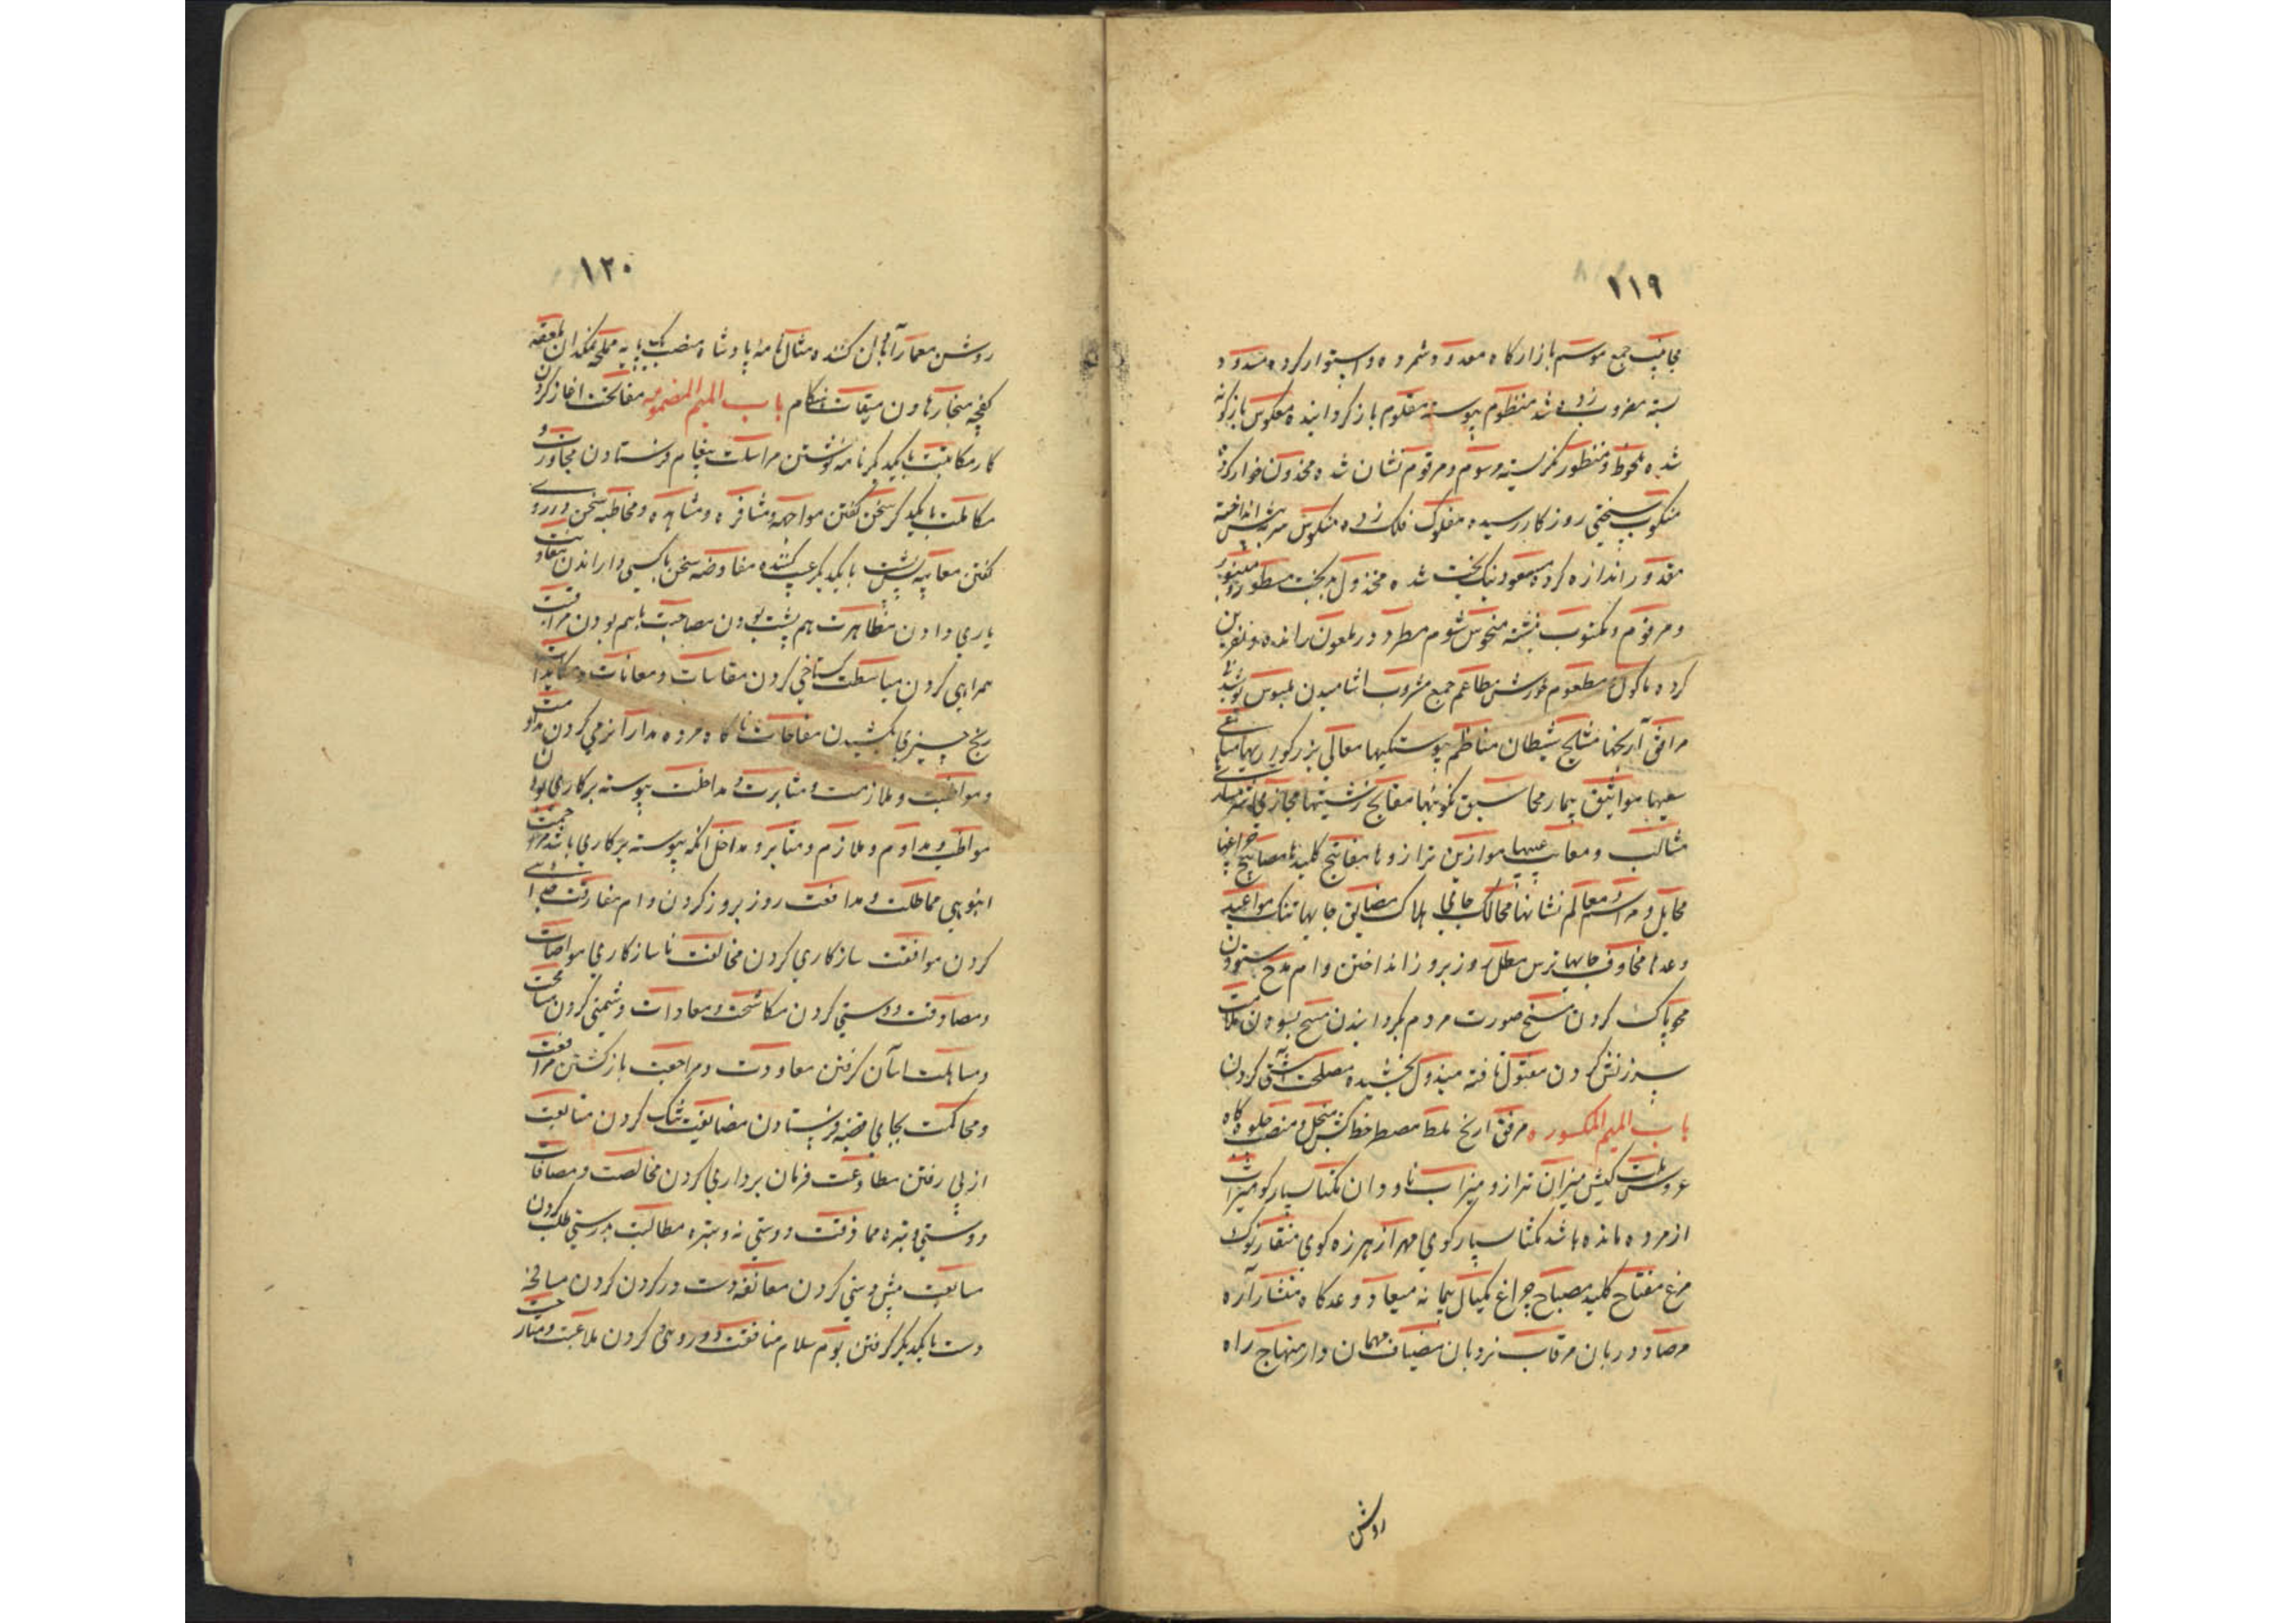 ۱۱۹
جمع موسم بازار کاه معدود شمرده و استوار کرده مسدود
بسته مضروب زده شد منظوم پیوسته مقلوم باز کردانیده معکوس بازکونه
شده ملحوظ و منظور نکریسته مرسوم و مرقوم نشان شده مخذول خوار کرده
منکوب سختی روزکار رسیده مفلوک فلک زده منکوس سر پیش انداخته
مقدور اندازه کرده مسعود نیک بخت شده مخذول بدبخت مسطور و مزبور
و مرقوم و مکتوب نبشته منحوس شوم مطرود و ملعون رانده و نفرین
کرده ماکول و مطعوم خورش مطاعم جمع مشروب اشامیدن ملبوس پوشید
مرافق آرنجها شیطان مناظم پیوستکیها معالی بزرکوریها
مواثیق پیمان محاسن نکوئیها مقابح زشتیها مجازی
مثالب و معایب عیبها موازین ترازوها مفاتیح کلیدها مصابیح چراغها
مخایل و مراسم و معالم نشانها مهالک جای هلاک مضایق جایها تنک مواعید
وعدها مخاوف جایهای ترس مطل روز بروز انداختن وام مدح ستودن
محو پاک کردن مسخ صورت مردم بکردانیدن مسح بسودن ملامت
سرزنش کردن مفتول تافته مبذول بخشیده مصلحت آشتی کردن
باب المیم المکسوره مرفق ارنج خط کش منجل و منصه جلوه کاه
عروس ملت کیش میزان ترازو میزاب ناودان مکثار بسیار کو میراث
از مرده مانده باشد مکثار بسیار کوی مهذار هرزه کوی منقار نوک
مرغ مفتاح کلید مصباح چراغ مکیال پیمانه میعاد وعدکاه منشار آره
مرصاد دربان مرقات نردبان مضیاف مهمان دار منهاج راه
روشن
۱۲۰
روشن معمار آبادان کننده مثال نامهٔ پادشاه منصب پایه مملحه نمکدان ملعقه
کفچه منجار هاون میقات هنکام باب المیم المضمومه مفاتحت اغاز کردن
کار مکاتبت بایکدیکر نامه نوشتن مراسلت پیغام فرستادن محاورت و
مکالمت بایکدیکر سخن کفتن مواجهه و مشافهه و مشاهده و مخاطبه سخن در روی
کفتن بایکدیکر کننده مفاوضه سخن با کسی واراندن معاونت
یاری دادن مظاهرت هم پشت بودن مصاحبت باهم بودن مرافقت
همراهی کردن مباسطت کستاخی کردن مقاسات و معانات و مکابدات
رنج چیزی کشیدن مفاجات ناکاه مردن مدارا نرمی کردن مداومت
و مواظبت و ملازمت و مثابرت و مداخلت پیوسته بر کاری بودن
مواظب و مداوم و ملازم و مثابر و مداخل آنکه پیوسته بر کاری باشد مزاحمت
انبوهی مماطلت و مدافعت روز بروز کردن وام مفارقت جدائی
کردن موافقت سازکاری کردن مخالفت ناسازکاری مواصلت
و مصادقت دوستی کردن مکاشحت و معادات دشمنی کردن مسامحت
و مساهلت اسان کرفتن معاودت و مراجعت باز کشتن مرافعت
و محاکمت بجای قضیه فرستادن مضایقت تنک کردن متابعت
از پی رفتن مطاوعت فرمان برداری کردن مخالصت و مصافات
دوستی ویژه مماذقت دوستی نه ویژه مطالبت بدرستی طلب کردن
مسابقت پیش دستی کردن معانقه دست در کردن کردن مصافحه
دست بایکدیکر کرفتن سلام منافقت دوروئی کردن ملاعبت و ممازحت